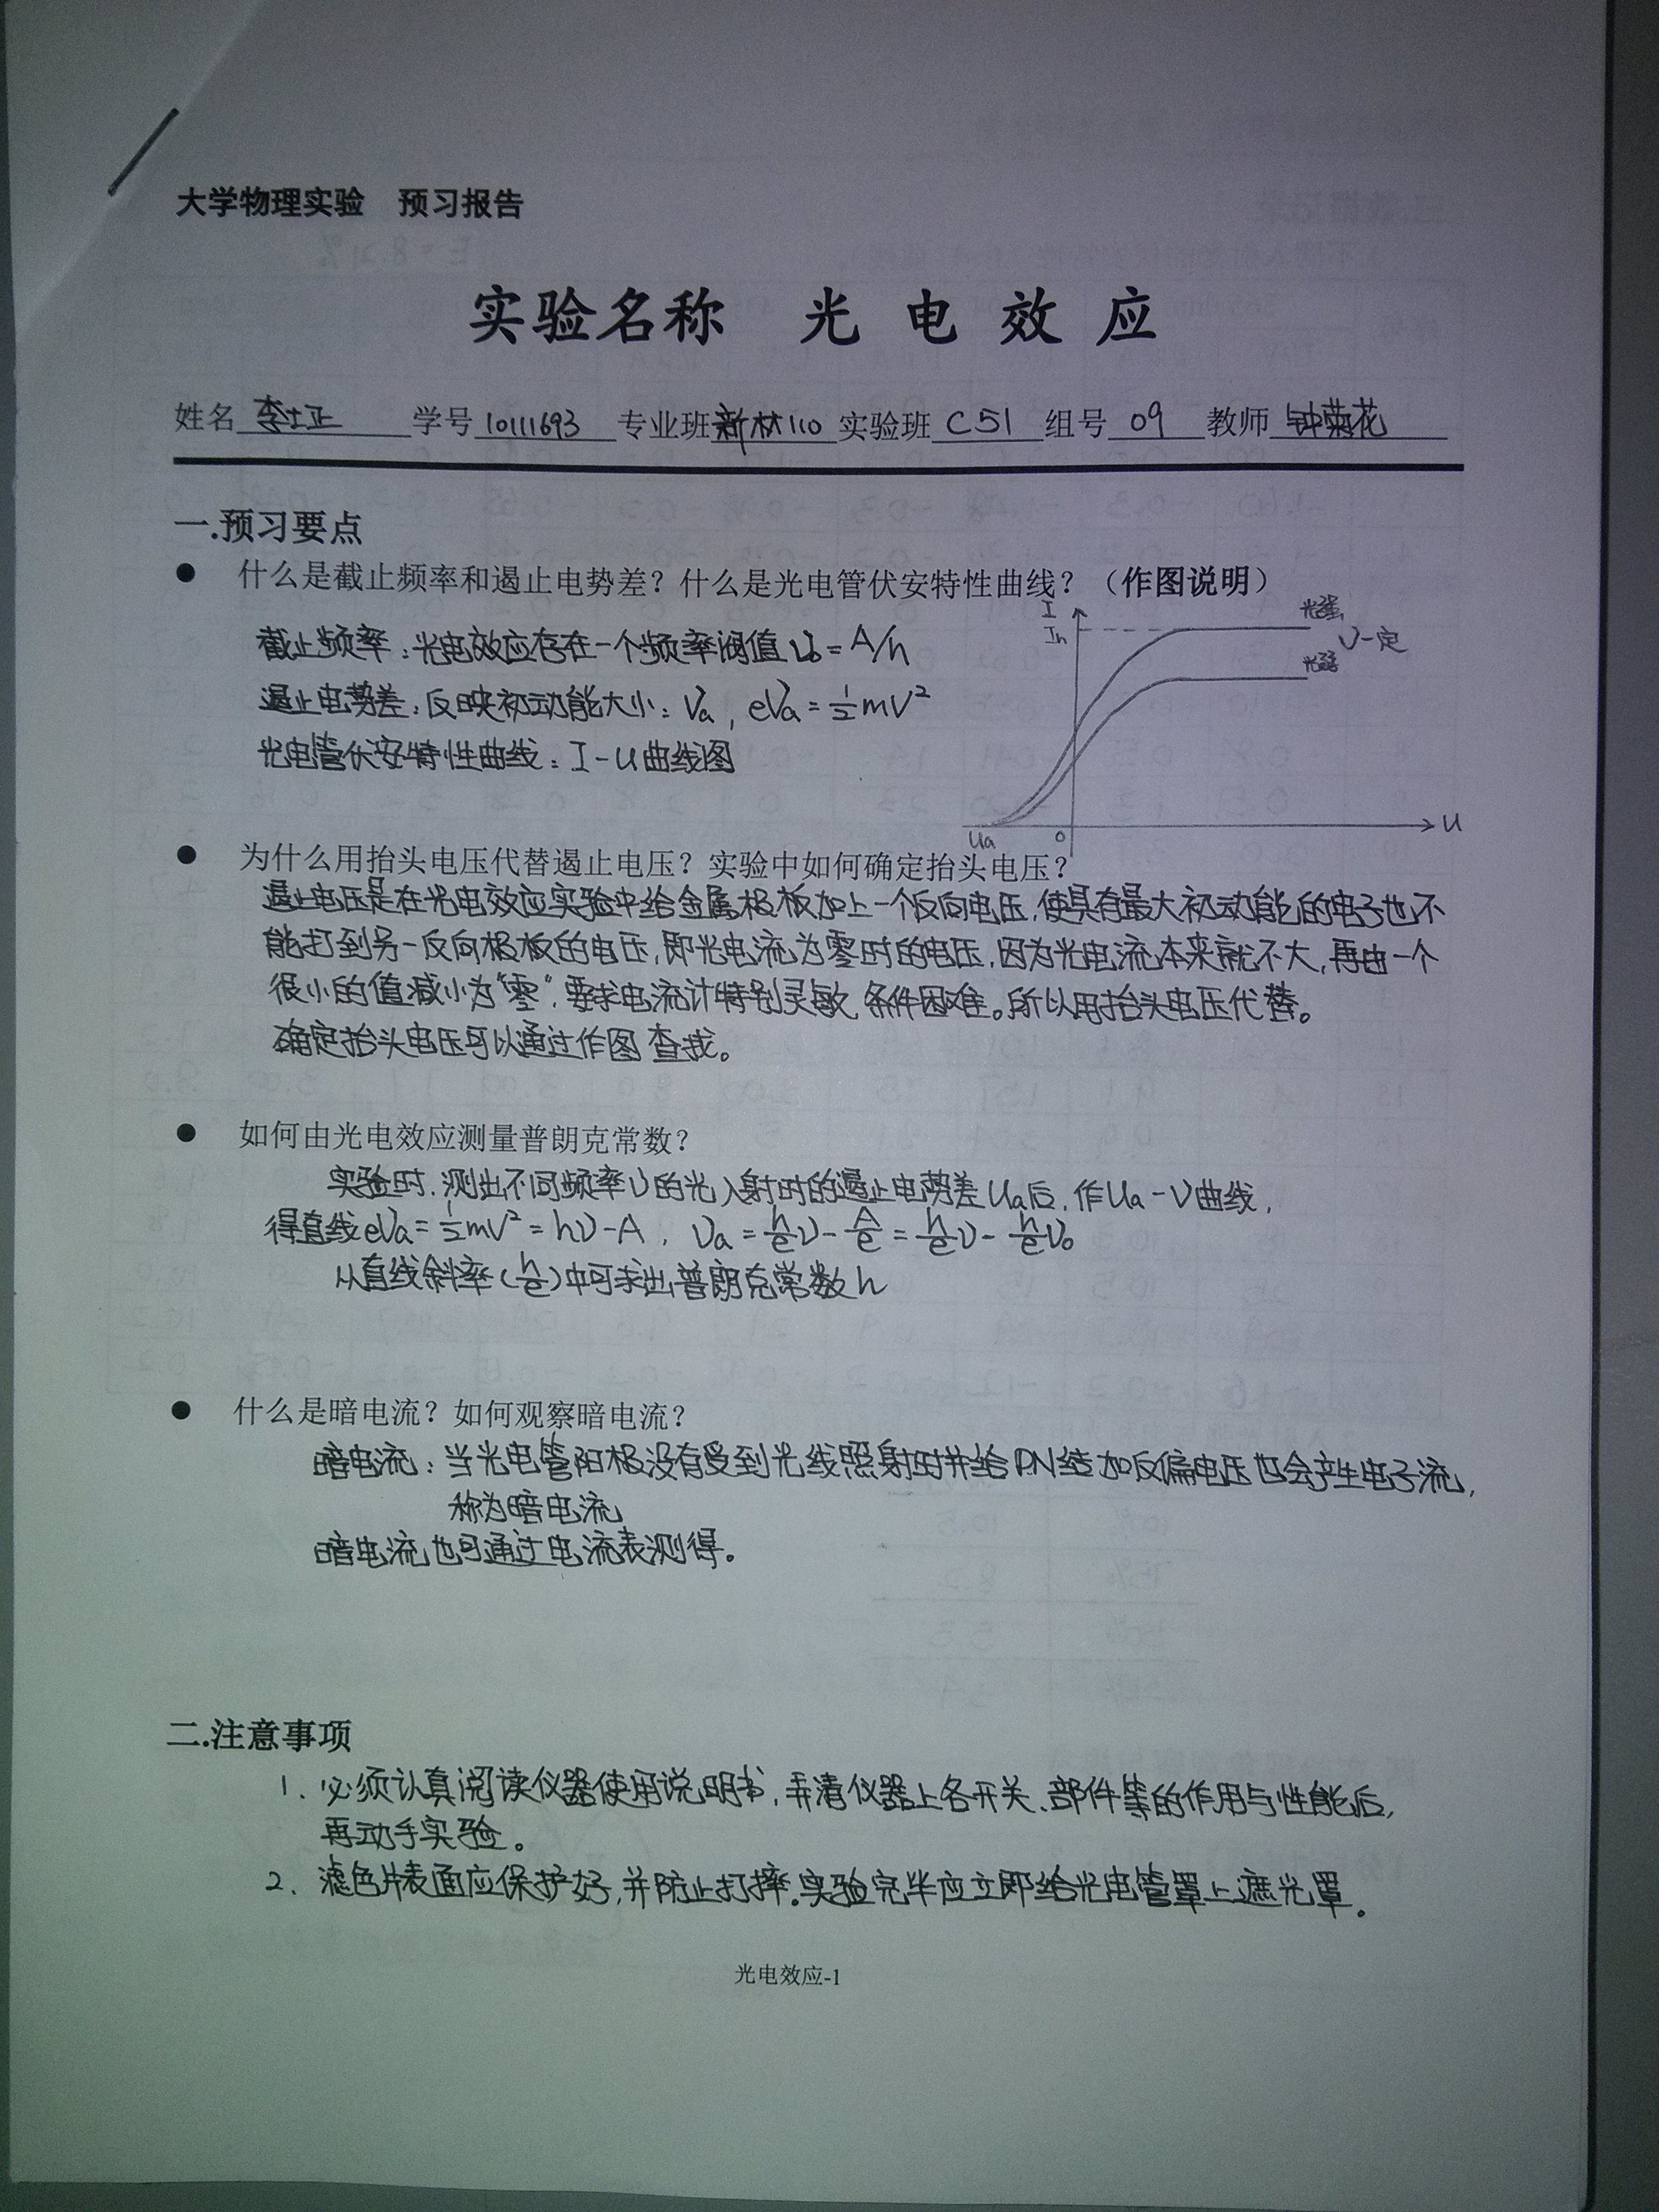 大学物理实验 预习报告
实验名称 光 电 效 应
姓名 李士正 学号 10111693 专业班 新材110 实验班 C51 组号 09 教师 钟菊花
一.预习要点
● 什么是截止频率和遏止电势差？什么是光电管伏安特性曲线？（作图说明）
截止频率：光电效应存在一个频率阀值ν₀=A/h
遏止电势差：反映初动能大小：Va，eVa=½mV²
光电管伏安特性曲线：I-U曲线图
I
光强
ν一定
光弱
Ua
O
U
● 为什么用抬头电压代替遏止电压？实验中如何确定抬头电压？
遏止电压是在光电效应实验中给金属极板加上一个反向电压，使具有最大初动能的电子也不
能打到另一反向极板的电压，即光电流为零时的电压，因为光电流本来就不大，再由一个
很小的值减小为"零"，要求电流计特别灵敏，条件困难。所以用抬头电压代替。
确定抬头电压可以通过作图查找。
● 如何由光电效应测量普朗克常数？
实验时，测出不同频率ν的光入射时的遏止电势差Ua后，作Ua-ν曲线，
得直线eVa=½mV²=hν-A，Va=h/e ν-A/e=h/e ν-h/e ν₀
从直线斜率(h/e)中可求出普朗克常数h
● 什么是暗电流？如何观察暗电流？
暗电流：当光电管阳极没有受到光线照射时并给PN结加反偏电压也会产生电子流，
称为暗电流
暗电流也可通过电流表测得。
二.注意事项
1. 必须认真阅读仪器使用说明书，弄清仪器上各开关、部件等的作用与性能后，
再动手实验。
2、滤色片表面应保护好，并防止打摔。实验完毕应立即给光电管罩上遮光罩。
光电效应-1